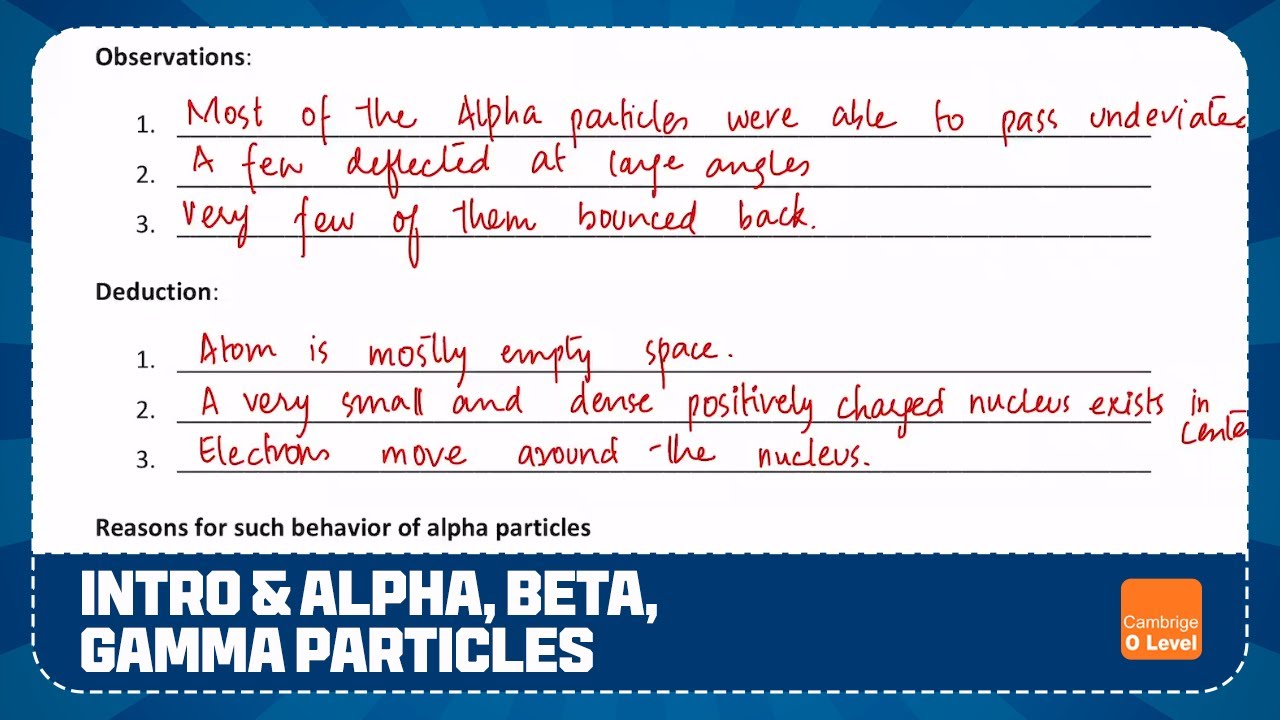 Observations:
1. Most of the Alpha particles were able to pass undeviated
2. A few deflected at large angles
3. very few of them bounced back.
Deduction:
1. Atom is mostly empty space.
2. A very small and dense positively charged nucleus exists in
center
3. Electrons move around the nucleus.
Reasons for such behavior of alpha particles
INTRO & ALPHA, BETA,
GAMMA PARTICLES
Cambrige
O Level